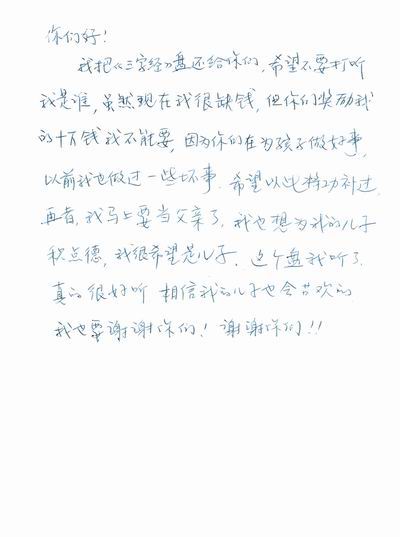 你们好!
我把《三字经》盘还给你们,希望不要打听
我是谁,虽然现在我很缺钱,但你们奖励我
的十万钱我不能要,因为你们在为孩子做好事,
以前我也做过一些坏事.希望以此将功补过.
再者,我马上要当父亲了,我也想为我的儿子
积点德,我很希望是儿子.这个盘我听了.
真的很好听 相信我的儿子也会喜欢的
我也要谢谢你们!谢谢你们!!